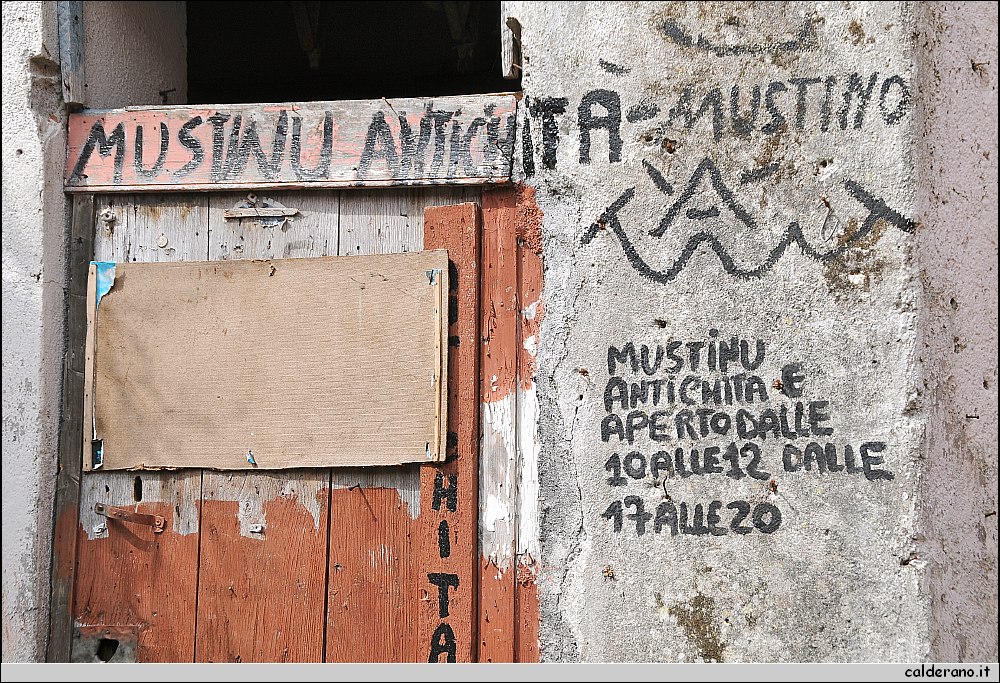 MUSTINU ANTICHITÀ - MUSTINO
MUSTINU
ANTICHITA E
APERTO DALLE
10 ALLE 12 DALLE
17 ALLE 20
HITA
calderano.it